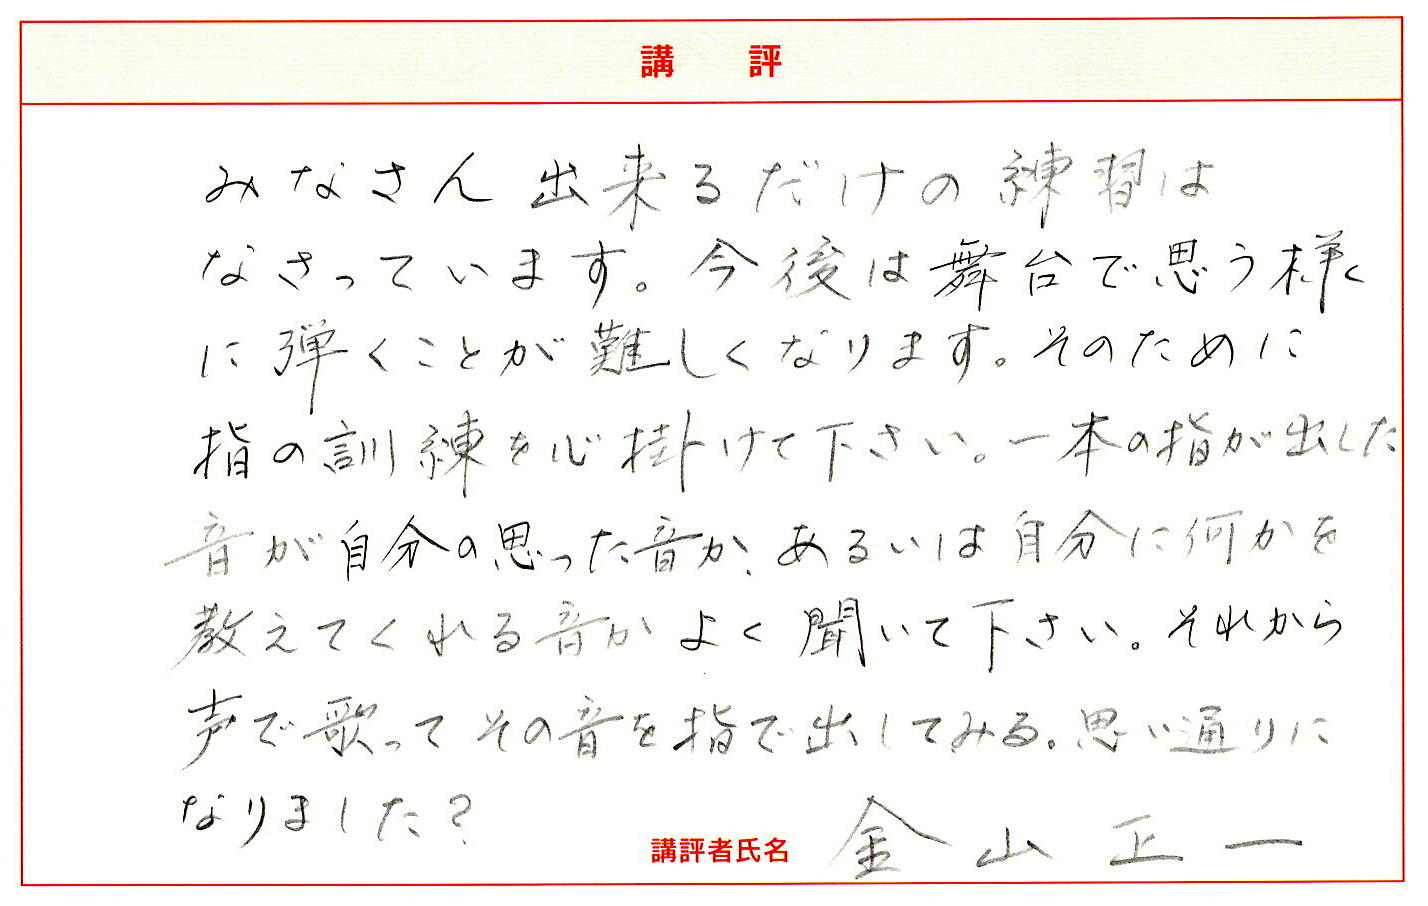 講　評
みなさん出来るだけの練習は
なさっています。今後は舞台で思う様
に弾くことが難しくなります。そのために
指の訓練を心掛けて下さい。一本の指が出した
音が自分の思った音か、あるいは自分に何かを
教えてくれる音かよく聞いて下さい。それから
声で歌ってその音を指で出してみる。思い通りに
なりました?
講評者氏名 金山正一